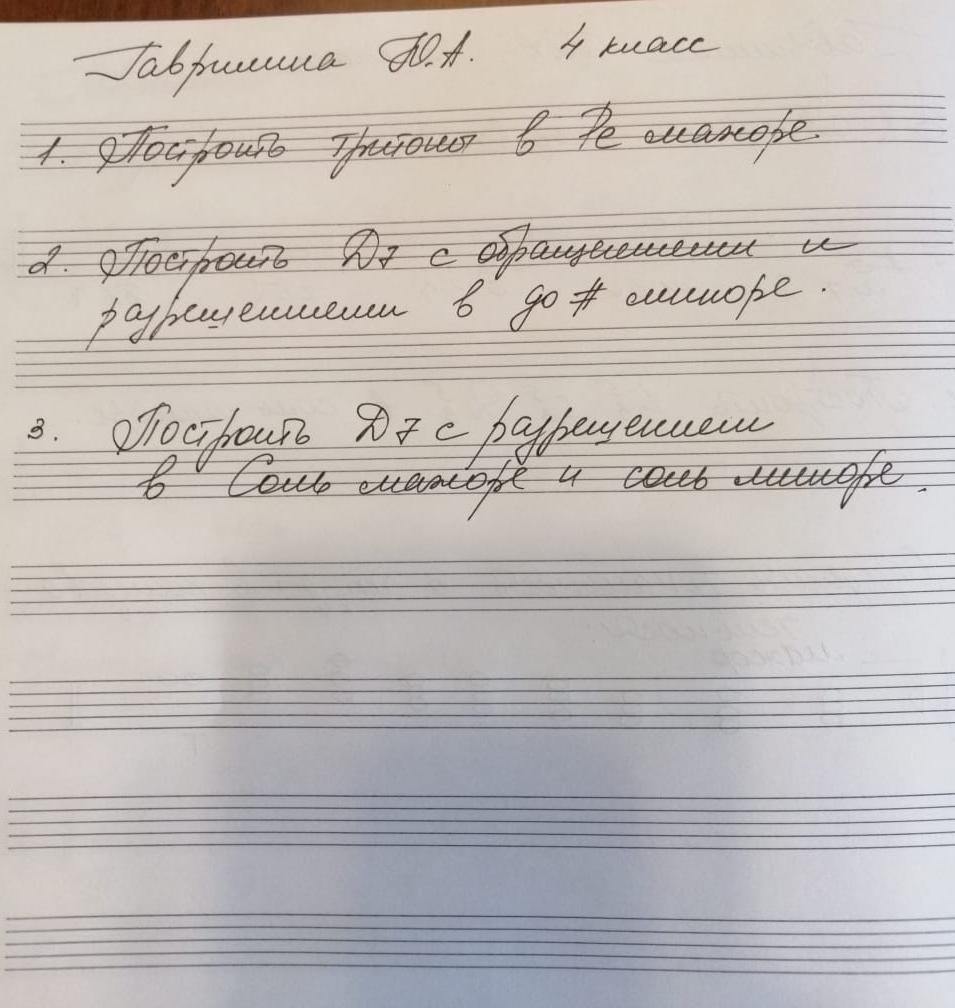 Гаврилина Ю.А. 4 класс
1. Построить тритоны в Ре мажоре.
2. Построить D7 с обращениями и
разрешениями в до # миноре.
3. Построить D7 с разрешением
в Соль мажоре и соль миноре.